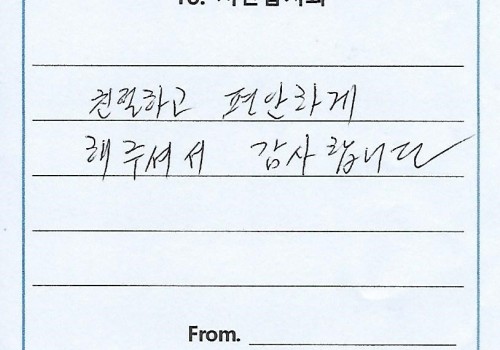 친절하고 편안하게
해주셔서 감사합니다
From.